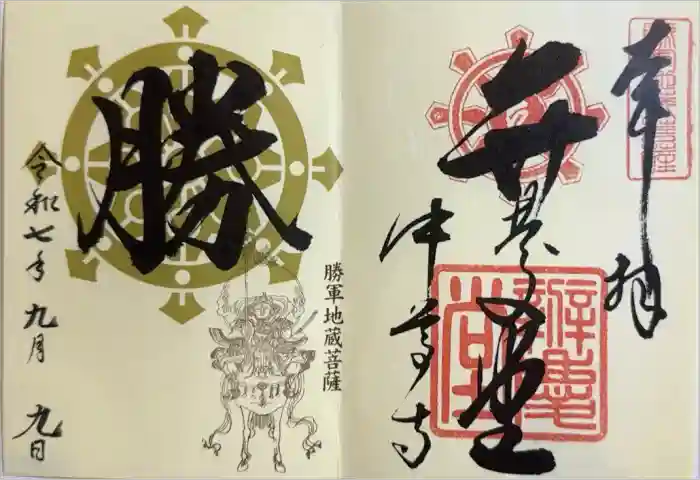 奉拝
弁慶堂
中尊寺
勝軍地蔵菩薩
勝
令和七年九月九日